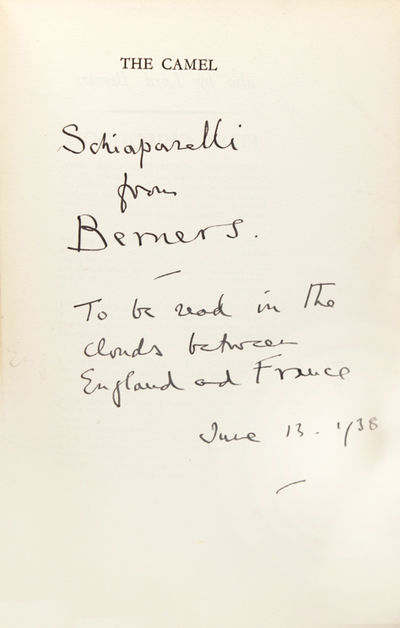 THE CAMEL
Schiaparelli
from
Berners.
To be read in the
clouds between
England and France
June 13. 1938